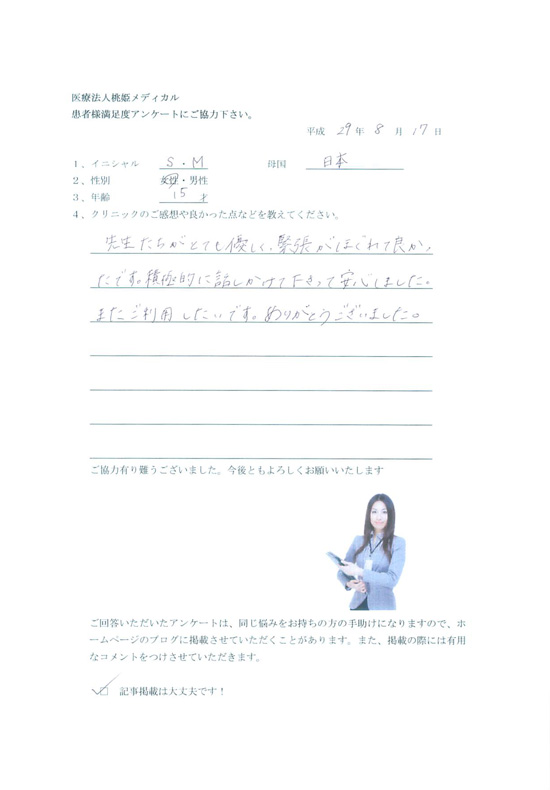 医療法人桃姫メディカル
患者様満足度アンケートにご協力下さい。
平成 29 年 8 月 17 日
1、イニシャル S・M 母国 日本
2、性別 女性・男性
3、年齢 15 才
4、クリニックのご感想や良かった点などを教えてください。
先生たちがとても優しく、緊張がほぐれて良かっ
たです。積極的に話しかけて下さって安心しました。
またご利用したいです。ありがとうございました。
ご協力有り難うございました。今後ともよろしくお願いいたします
ご回答いただいたアンケートは、同じ悩みをお持ちの方の手助けになりますので、ホ
ームページのブログに掲載させていただくことがあります。また、掲載の際には有用
なコメントをつけさせていただきます。
□ 記事掲載は大丈夫です！